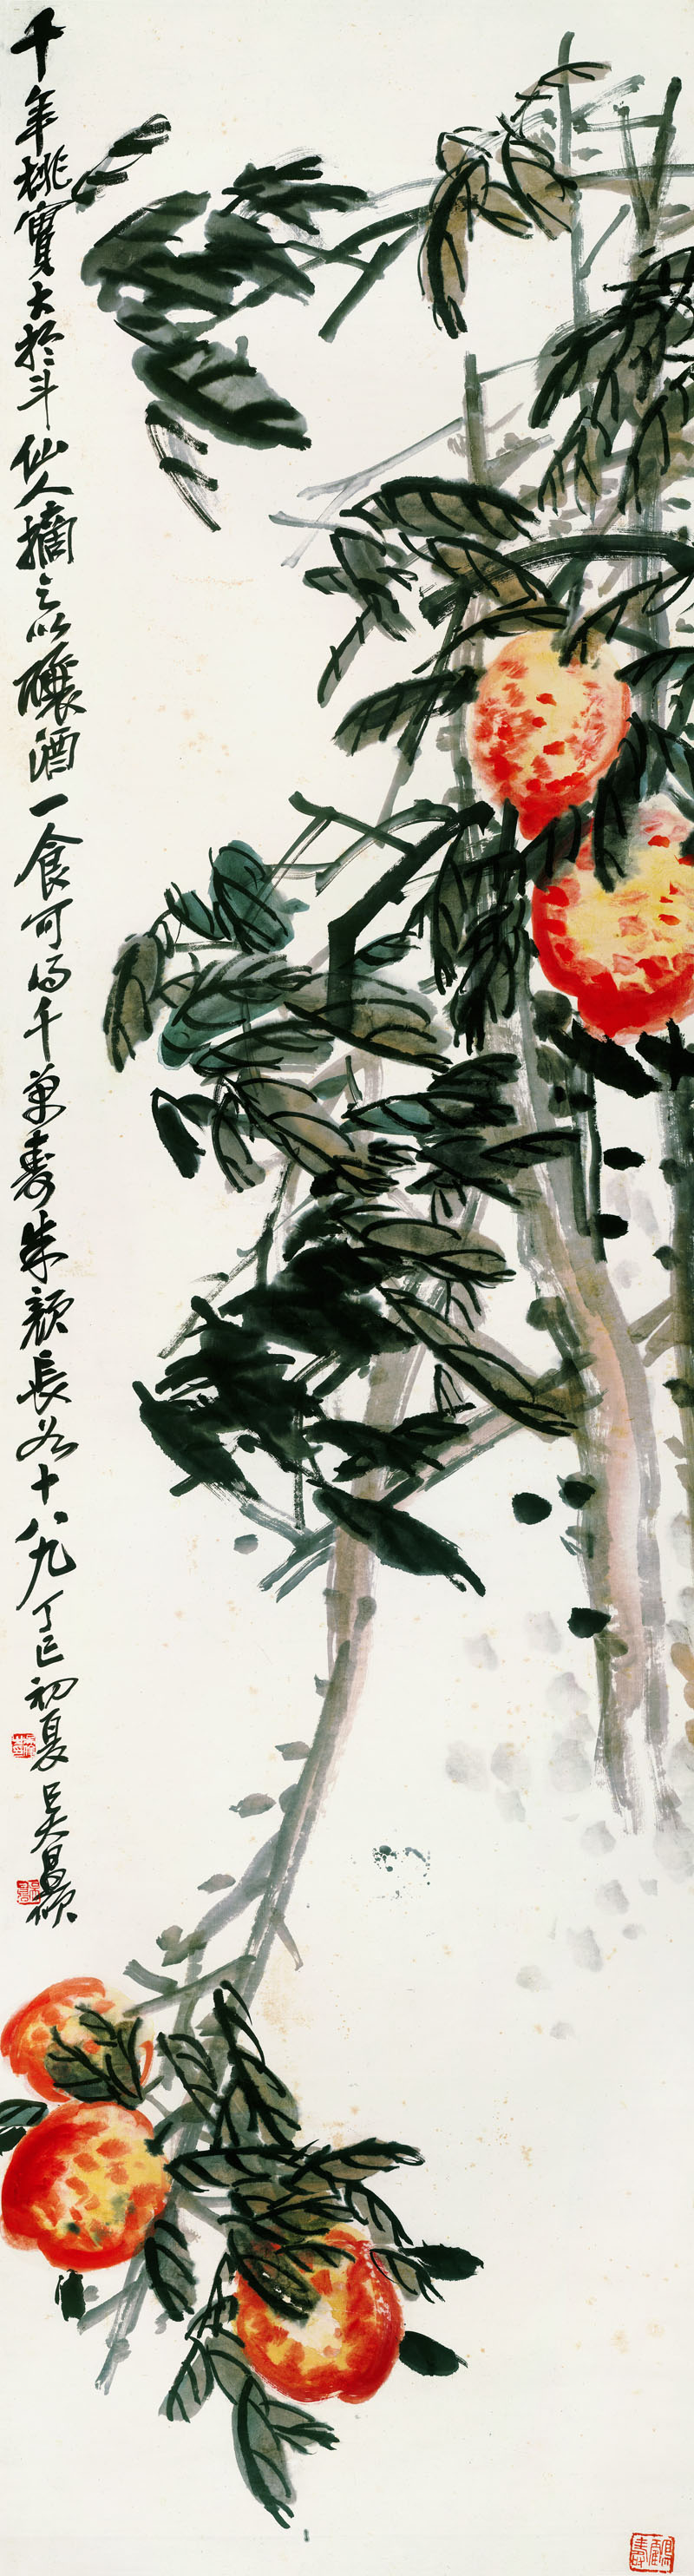 千年桃實大於斗仙人摘之以釀酒一食可得千萬壽朱顏長如十八九丁巳初夏吳昌碩